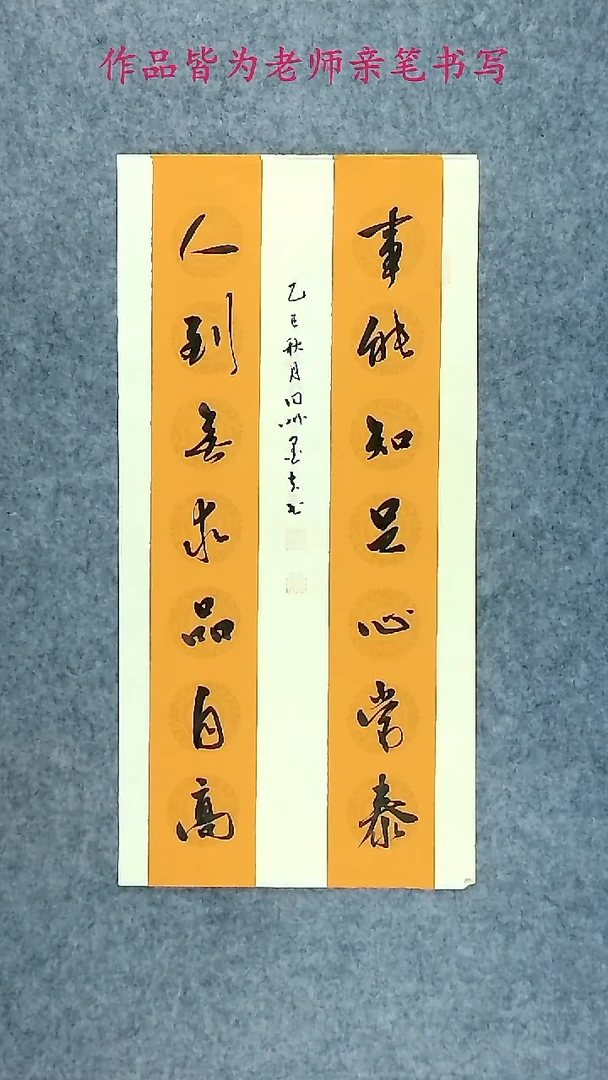 作品皆为老师亲笔书写
事能知足心常泰
人到无求品自高
乙巳秋月